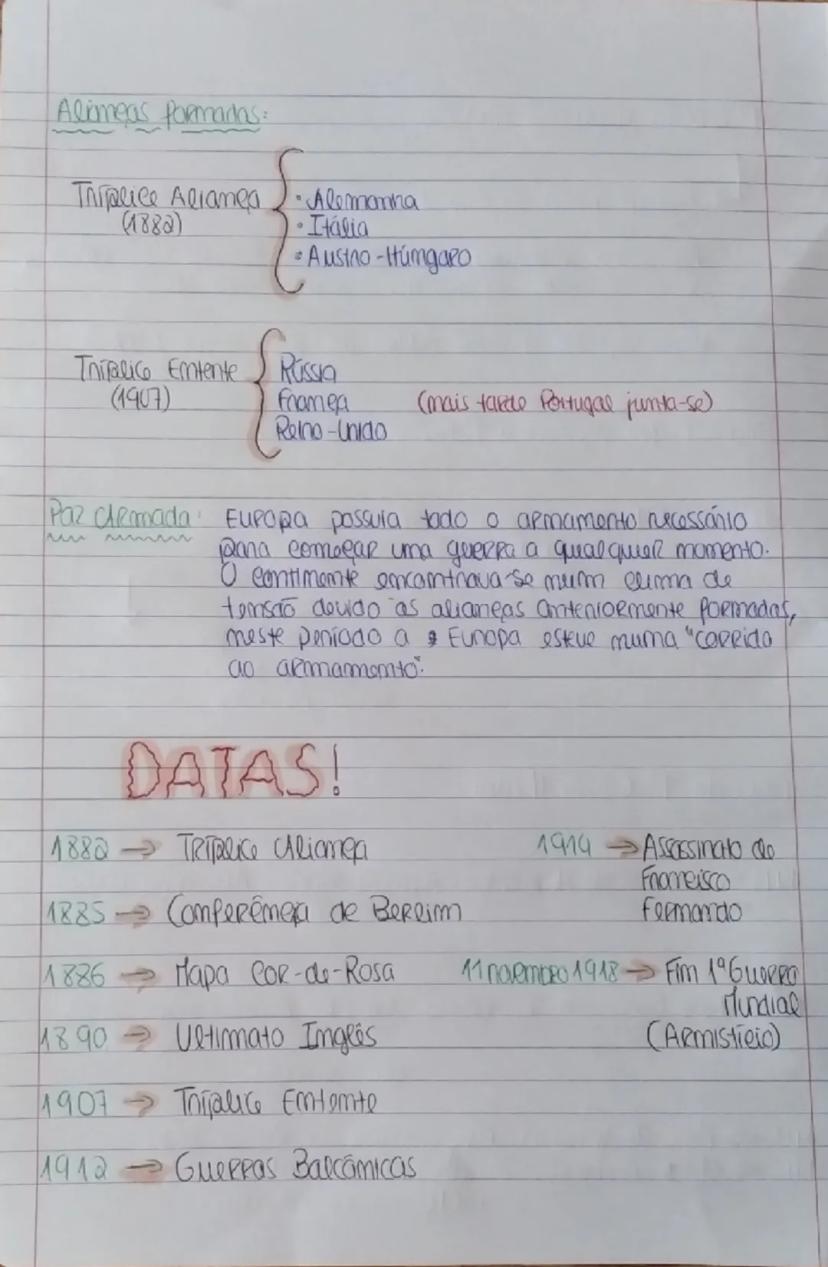 Alianças formadas:
Tríplice Aliança
(1882)
· Alemanha
· Itália
· Austro-Húngaro
Tríplice Entente
(1907)
Rússia
França (mais tarde Portugal junta-se)
Reino-Unido
Paz Armada: Europa possuia todo o armamento necessário
para começar uma guerra a qualquer momento.
O continente encontrava-se num clima de
tensão devido às alianças anteriormente formadas,
neste período a Europa esteve numa "corrida
ao armamento".
DATAS!
1882 → Tríplice Aliança
1885 → Conferência de Berlim
1886 → Mapa Cor-de-Rosa
1890 → Ultimato Inglês
1907 → Tríplice Entente
1912 → Guerras Balcânicas
1914 → Assassinato do
Francisco
Fernando
11 novembro 1918 → Fim 1ª Guerra
Mundial
(Armistício)